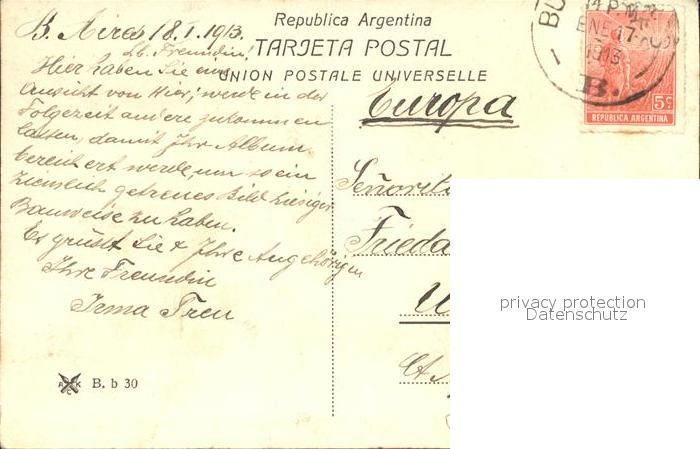 Republica Argentina
TARJETA POSTAL
UNION POSTALE UNIVERSELLE
B. Aires 18.I.1913.
Lb. Freundin!
Hier haben Sie eine
Ansicht von Hier; werde in der
Folgezeit andere zukommen
lassen, damit Ihr Album
bereichert werde, um so ein
ziemlich getreues Bild hiesiger
Bauweise zu haben.
Es grüsst Sie & Ihre Angehörigen
Ihre Freundin
Irma Treu
B. b 30
Europa
Señorita
Frieda
BU
14 P.M.
ENE 17
1913
B.
5c
REPUBLICA ARGENTINA
privacy protection
Datenschutz